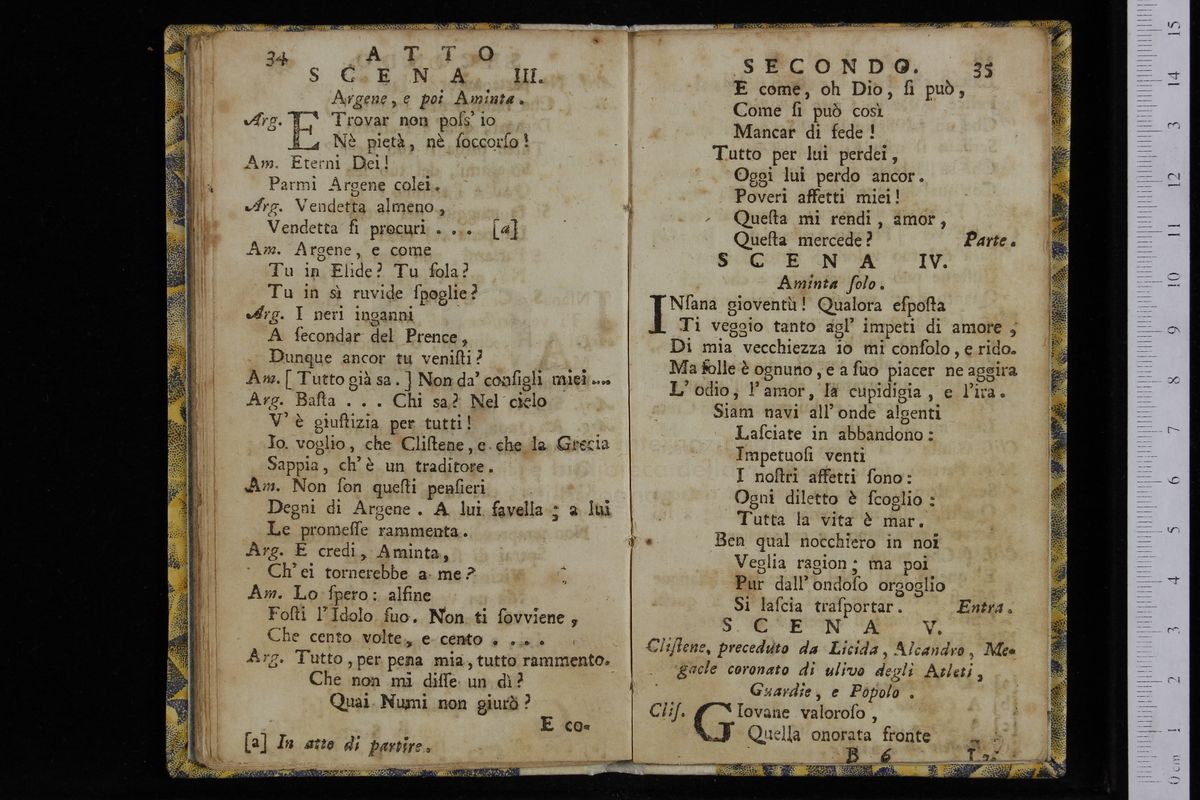 34 ATTO
SCENA III.
Argene, e poi Aminta.
Arg. E Trovar non poſs' io
Nè pietà, nè ſoccorſo!
Am. Eterni Dei!
Parmi Argene colei.
Arg. Vendetta almeno,
Vendetta ſi procuri . . . [a]
Am. Argene, e come
Tu in Elide? Tu ſola?
Tu in sì ruvide ſpoglie?
Arg. I neri inganni
A ſecondar del Prence,
Dunque ancor tu veniſti?
Am. [Tutto già sa.] Non da' conſigli miei ....
Arg. Baſta . . . Chi sa? Nel cielo
V' è giuſtizia per tutti!
Io voglio, che Cliſtene, e che la Grecia
Sappia, ch' è un traditore.
Am. Non ſon queſti penſieri
Degni di Argene. A lui favella; a lui
Le promeſſe rammenta.
Arg. E credi, Aminta,
Ch' ei tornerebbe a me?
Am. Lo ſpero: alfine
Foſti l'Idolo ſuo. Non ti ſovviene,
Che cento volte, e cento . . . .
Arg. Tutto, per pena mia, tutto rammento.
Che non mi diſſe un dì?
Quai Numi non giurò?
E co-
[a] In atto di partire.
SECONDO. 35
E come, oh Dio, ſi può,
Come ſi può così
Mancar di fede!
Tutto per lui perdei,
Oggi lui perdo ancor.
Poveri affetti miei!
Queſta mi rendi, amor,
Queſta mercede? Parte.
SCENA IV.
Aminta ſolo.
INſana gioventù! Qualora eſpoſta
Ti veggio tanto agl' impeti di amore,
Di mia vecchiezza io mi conſolo, e rido.
Ma folle è ognuno, e a ſuo piacer ne aggira
L' odio, l'amor, la cupidigia, e l'ira.
Siam navi all' onde algenti
Laſciate in abbandono:
Impetuoſi venti
I noſtri affetti ſono:
Ogni diletto è ſcoglio:
Tutta la vita è mar.
Ben qual nocchiero in noi
Veglia ragion; ma poi
Pur dall' ondoſo orgoglio
Si laſcia traſportar. Entra.
SCENA V.
Cliſtene, preceduto da Licida, Alcandro, Me-
gacle coronato di ulivo degli Atleti,
Guardie, e Popolo.
Cliſ. GIovane valoroſo,
Quella onorata fronte
B 6